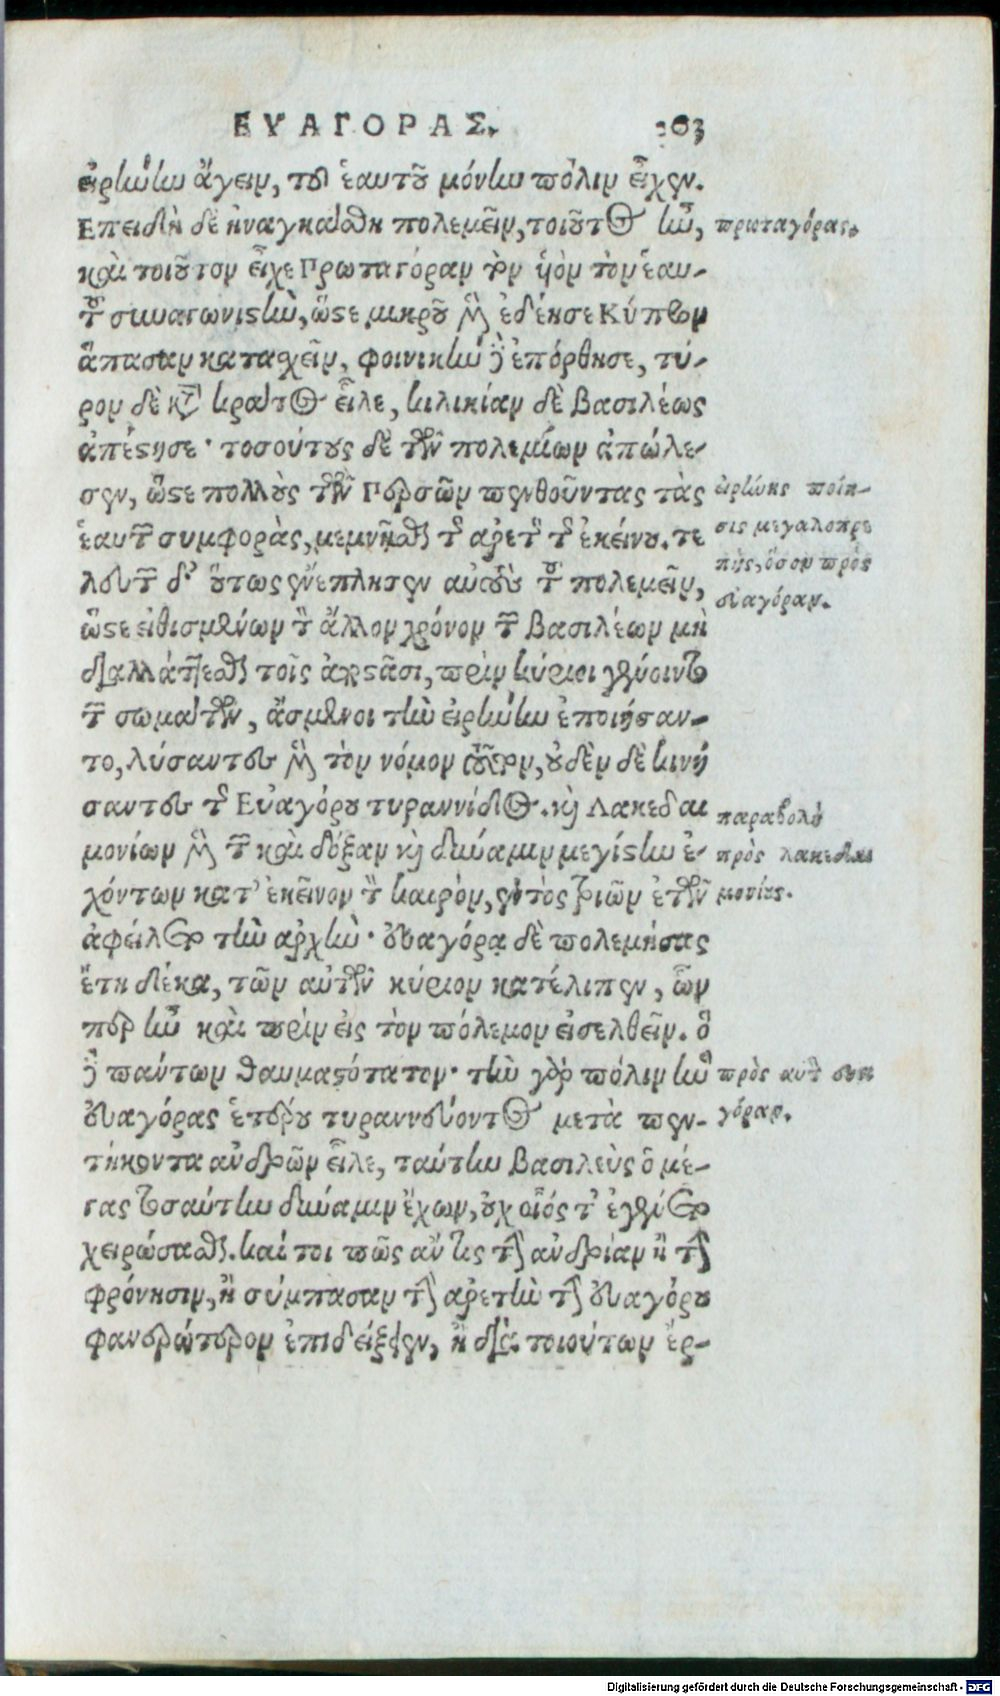 ΕΥΑΓΟΡΑΣ.
εἰρήνην ἄγειν, τὴν ἑαυτοῦ μόνην πόλιν εἶχεν.
Ἐπειδὴ δὲ ἠναγκάσθη πολεμεῖν, τοιοῦτος ἦν,
πρωταγόρας.
καὶ τοιοῦτον εἶχε Πρωταγόραν τὸν υἱὸν τὸν ἑαυ-
τοῦ συναγωνιστὴν, ὥστε μικροῦ μὲν ἐδέησε Κύπρον
ἅπασαν κατασχεῖν, φοινίκην δ' ἐπόρθησε, τύ-
ρον δὲ κατὰ κράτος εἷλε, κιλικίαν δὲ βασιλέως
ἀπέστησε· τοσούτους δὲ τῶν πολεμίων ἀπώλε-
σεν, ὥστε πολλοὺς τῶν Περσῶν πενθοῦντας τὰς
ἑαυτῶν συμφορὰς, μεμνῆσθαι τῆς ἀρετῆς τῆς ἐκείνου. τε
λευτῶν δ' οὕτως ἐνέπλησεν αὐτοὺς τοῦ πολεμεῖν,
εἰρήνης ποίη-
σις μεγαλοπρε
πὴς, ὅσον πρὸς
εὐαγόραν.
ὥστε εἰθισμένων τὸν ἄλλον χρόνον τῶν βασιλέων μὴ
διαλλάττεσθαι τοῖς ἀποστᾶσι, πρὶν κύριοι γένοιντο
τῶν σωμάτων, ἄσμενοι τὴν εἰρήνην ἐποιήσαν-
το, λύσαντες μὲν τὸν νόμον τοῦτον, οὐδὲν δὲ κινή
σαντες τῆς Εὐαγόρου τυραννίδος. καὶ Λακεδαι
μονίων μὲν τῶν καὶ δόξαν καὶ δύναμιν μεγίστην ἐ-
χόντων κατ' ἐκεῖνον τὸν καιρὸν, ἐντὸς τριῶν ἐτῶν
παραβολὴ
πρὸς λακεδαι
μονίους.
ἀφείλετο τὴν ἀρχὴν· εὐαγόρᾳ δὲ πολεμήσας
ἔτη δέκα, τῶν αὐτῶν κύριον κατέλιπεν, ὧν
περ ἦν καὶ πρὶν εἰς τὸν πόλεμον εἰσελθεῖν. ὃ
δὲ πάντων θαυμαστότατον· τὴν γὰρ πόλιν ἣν
εὐαγόρας ἑτέρου τυραννεύοντος μετὰ πεν-
πρὸς αὐτὸν εὐα
γόραν.
τήκοντα ἀνδρῶν εἷλε, ταύτην βασιλεὺς ὁ μέ-
γας τοσαύτην δύναμιν ἔχων, οὐχ οἷός τ' ἐγένετο
χειρώσασθαι. καί τοι πῶς ἄν τις τὴν ἀνδρίαν ἢ τὴν
φρόνησιν, ἢ σύμπασαν τὴν ἀρετὴν τὴν εὐαγόρου
φανερώτερον ἐπιδείξειεν, ἢ διὰ τοιούτων ἔρ-
Digitalisierung gefördert durch die Deutsche Forschungsgemeinschaft - DFG